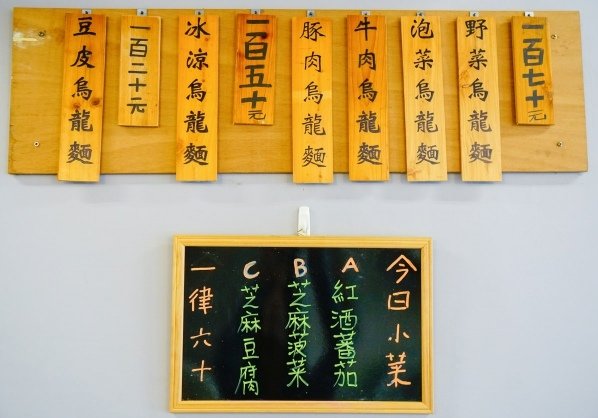 一百七十元
野菜烏龍麵
泡菜烏龍麵
牛肉烏龍麵
豚肉烏龍麵
一百五十元
冰涼烏龍麵
一百二十元
豆皮烏龍麵
今日小菜
A紅酒蕃茄
B芝麻菠菜
C芝麻豆腐
一律六十